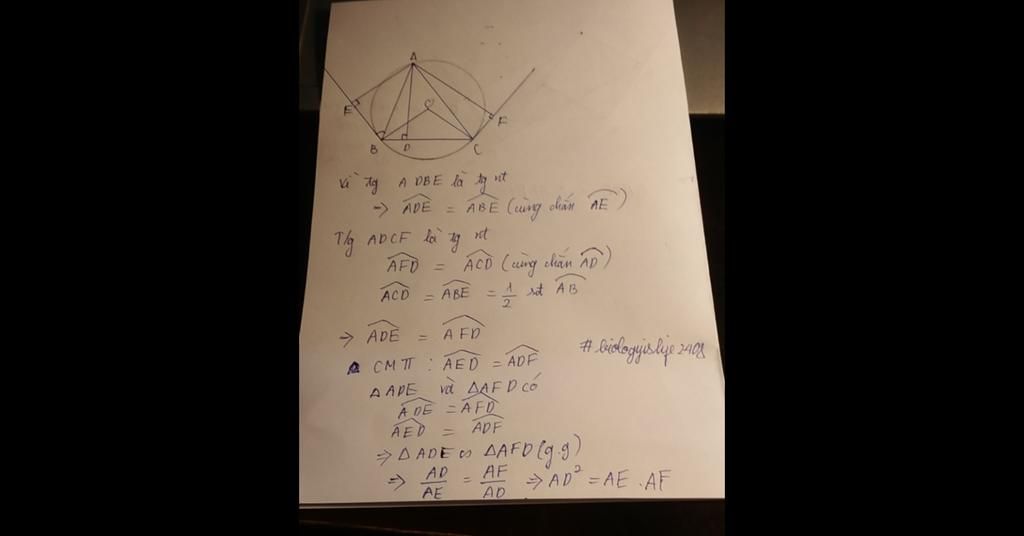 A
E
O
F
B
D
C
Vì tg ADBE là tg nt
→ ADE = ABE (cùng chắn AE)
T/g ADCF là tg nt
AFD = ACD (cùng chắn AD)
ACD = ABE = 1/2 sđ AB
→ ADE = AFD
#biologyislife2408
CMTT : AED = ADF
△ADE và △AFD có
ADE = AFD
AED = ADF
⇒ △ADE ∽ △AFD (g.g)
⇒ AD/AE = AF/AD ⇒ AD² = AE . AF